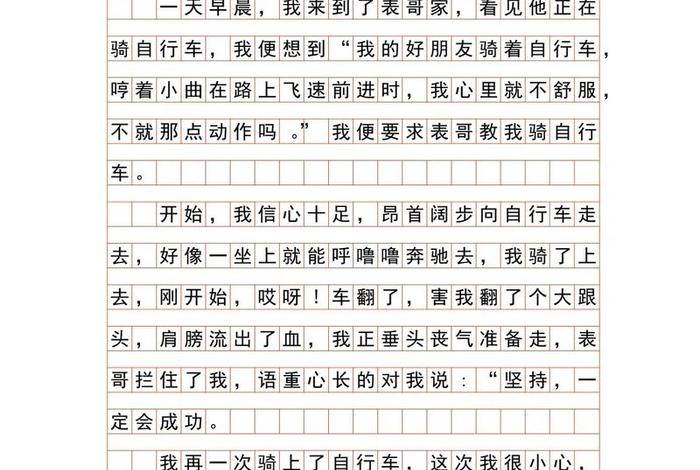 一天早晨，我来到了表哥家，看见他正在
骑自行车，我便想到“我的好朋友骑着自行车，
哼着小曲在路上飞速前进时，我心里就不舒服，
不就那点动作吗。”我便要求表哥教我骑自行
车。
开始，我信心十足，昂首阔步向自行车走
去，好像一坐上就能呼噜噜奔驰去，我骑了上
去，刚开始，哎呀！车翻了，害我翻了个大跟
头，肩膀流出了血，我正垂头丧气准备走，表
哥拦住了我，语重心长的对我说：“坚持，一
定会成功。
我再一次骑上了自行车，这次我很小心，